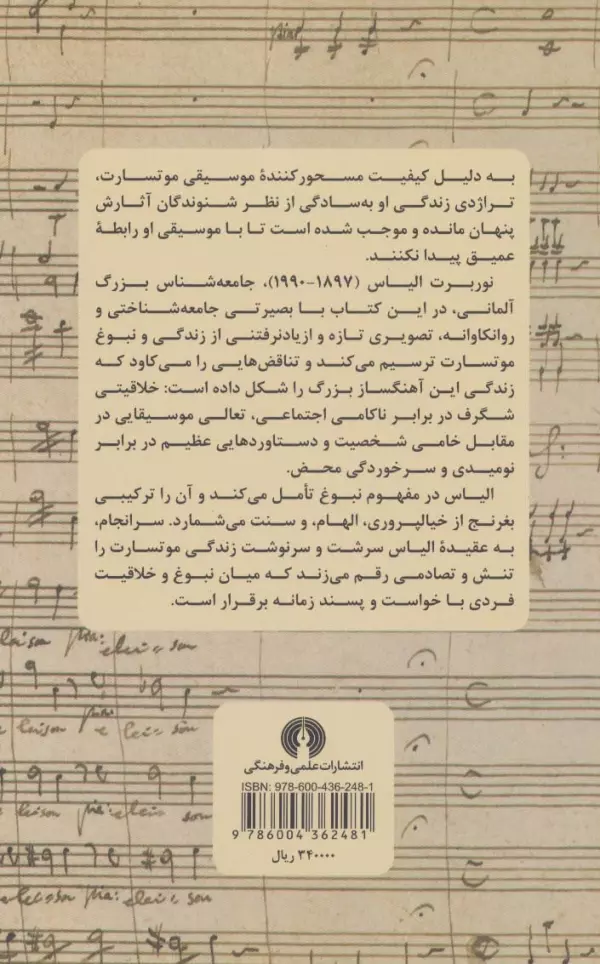 به دلیل کیفیت مسحورکنندهٔ موسیقی موتسارت،
تراژدی زندگی او به‌سادگی از نظر شنوندگان آثارش
پنهان مانده و موجب شده است تا با موسیقی او رابطهٔ
عمیق پیدا نکنند.
نوربرت الیاس (۱۸۹۷-۱۹۹۰)، جامعه‌شناس بزرگ
آلمانی، در این کتاب با بصیرتی جامعه‌شناختی و
روانکاوانه، تصویری تازه و ازیادنرفتنی از زندگی و نبوغ
موتسارت ترسیم می‌کند و تناقض‌هایی را می‌کاود که
زندگی این آهنگساز بزرگ را شکل داده است: خلاقیتی
شگرف در برابر ناکامی اجتماعی، تعالی موسیقایی در
مقابل خامی شخصیت و دستاوردهایی عظیم در برابر
نومیدی و سرخوردگی محض.
الیاس در مفهوم نبوغ تأمل می‌کند و آن را ترکیبی
بغرنج از خیالپروری، الهام، و سنت می‌شمارد. سرانجام،
به عقیدهٔ الیاس سرشت و سرنوشت زندگی موتسارت را
تنش و تصادمی رقم می‌زند که میان نبوغ و خلاقیت
فردی با خواست و پسند زمانه برقرار است.
eleison
eleison
eleison
pia: eleison
انتشارات علمی و فرهنگی
ISBN: 978-600-436-248-1
9 786004 362481
۳۴۰۰۰۰ ریال